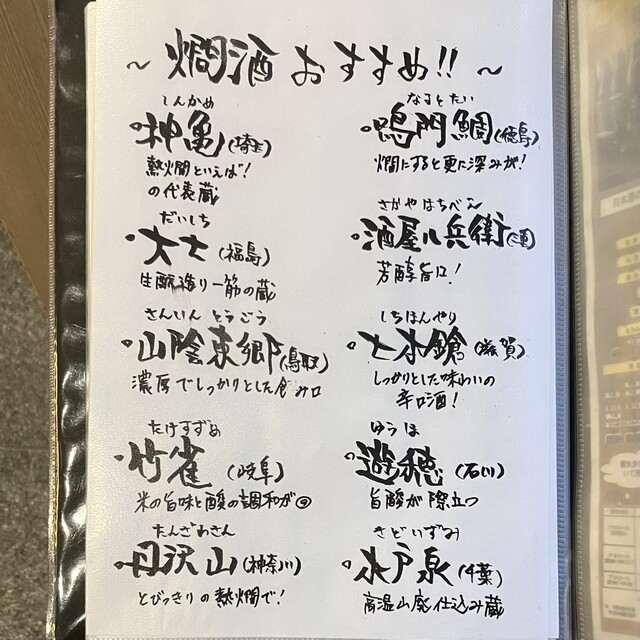 ～燗酒おすすめ!!～
しんかめ
・神亀(埼玉)
熱燗といえば!
の代表蔵
だいしち
・大七(福島)
生酛造り一筋の蔵
さんいん とうごう
・山陰東郷(鳥取)
濃厚でしっかりとした飲み口
たけすずめ
・竹雀(岐阜)
米の旨味と酸の調和が◎
たんざわさん
・丹沢山(神奈川)
とびっきりの熱燗で!
なるとたい
・鳴門鯛(徳島)
燗にすると更に深みが!
さかやはちべえ
・酒屋八兵衛(三重)
芳醇旨口!
しちほんやり
・七本鎗(滋賀)
しっかりとした味わいの
辛口酒!
ゆうほ
・遊穂(石川)
旨酸が際立つ
きどいずみ
・木戸泉(千葉)
高温山廃仕込み蔵